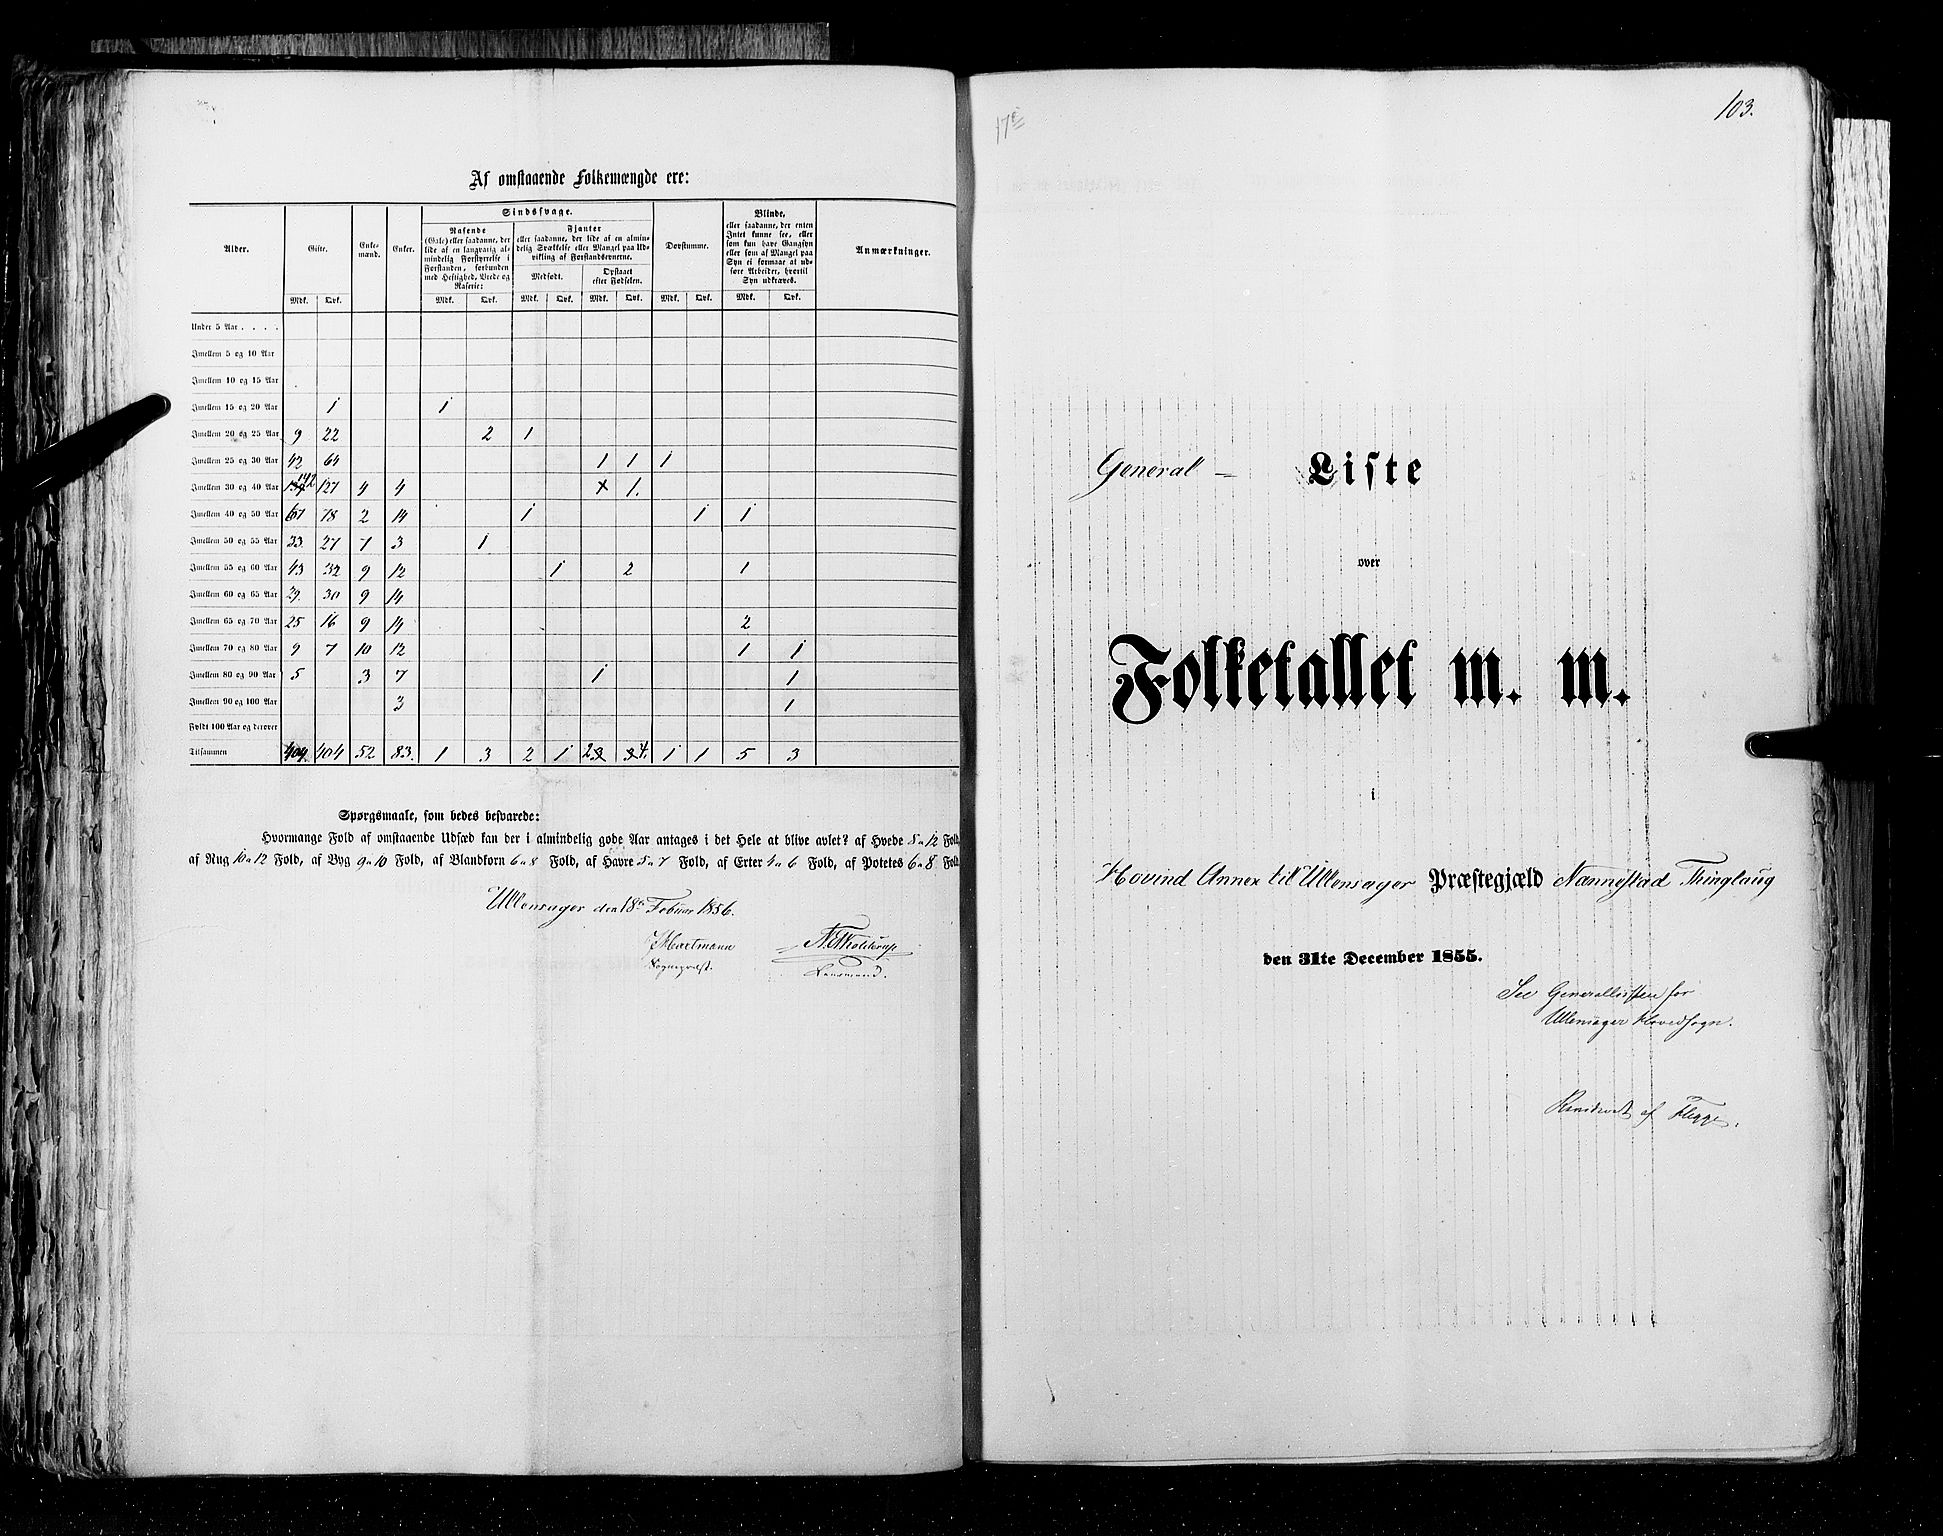 Af omstaaende Folkemængde ere:
Alder. Gifte. Enkemænd. Enker. Sindssvage. Døvstumme. Blinde, Anmærkninger.
Rasende (Gale) eller saadanne, der lide af en langvarig almindelig Forstyrrelse i Forstanden, forbunden med Heftighed, Vrede og Raserie:
Fjanter eller saadanne, der lide af en almindelig Svækkelse eller Mangel paa Udvikling af Forstandsevnerne.
Medfødt. Opstaaet efter Fødselen.
eller saadanne, der enten Intet kunne see, eller som kun have Gangsyn eller som af Mangel paa Syn ei formaae at udføre Arbeider, hvortil Syn udkræves.
Mdk. Qvk. Mdk. Qvk. Mdk. Qvk. Mdk. Qvk. Mdk. Qvk. Mdk. Qvk.
Under 5 Aar . . . .
Imellem 5 og 10 Aar
Imellem 10 og 15 Aar
Imellem 15 og 20 Aar 1 1
Imellem 20 og 25 Aar 9 22 2 1
Imellem 25 og 30 Aar 42 64 1 1 1
Imellem 30 og 40 Aar 142 127 4 4 1.
Imellem 40 og 50 Aar 67 78 2 14 1 1 1
Imellem 50 og 55 Aar 33. 27 7 3 1
Imellem 55 og 60 Aar 43 32 9 12 1 2 1
Imellem 60 og 65 Aar 29. 30 9 14
Imellem 65 og 70 Aar 25 16 9 14 2
Imellem 70 og 80 Aar 9 7 10 12 1 1
Imellem 80 og 90 Aar 5 3 7 1 1
Imellem 90 og 100 Aar 3 1
Fyldt 100 Aar og derover
Tilsammen 404. 404 52 83. 1 3 2 1 2 4. 1 1 5 3
Spørgsmaale, som bedes besvarede:
Hvormange Fold af omstaaende Udsæd kan der i almindelig gode Aar antages i det Hele at blive avlet? af Hvede 8 a 12 Fold,
af Rug 10 a 12 Fold, af Byg 9 a 10 Fold, af Blandkorn 6 a 8 Fold, af Havre 5 a 7 Fold, af Erter 4 a 6 Fold, af Potetes 6 a 8 Fold.
Ullensager den 18de Februar 1856.
JHartmann
Sognepræst.
Lensmand.
17e
103.
General - Liste
over
Folketallet m. m.
i
Hovind Annex til Ullensager Præstegjæld Nannestad Thinglaug
den 31te December 1855.
See Generallisten for
Ullensager Hovedsogn.
Revideret af Flegge.